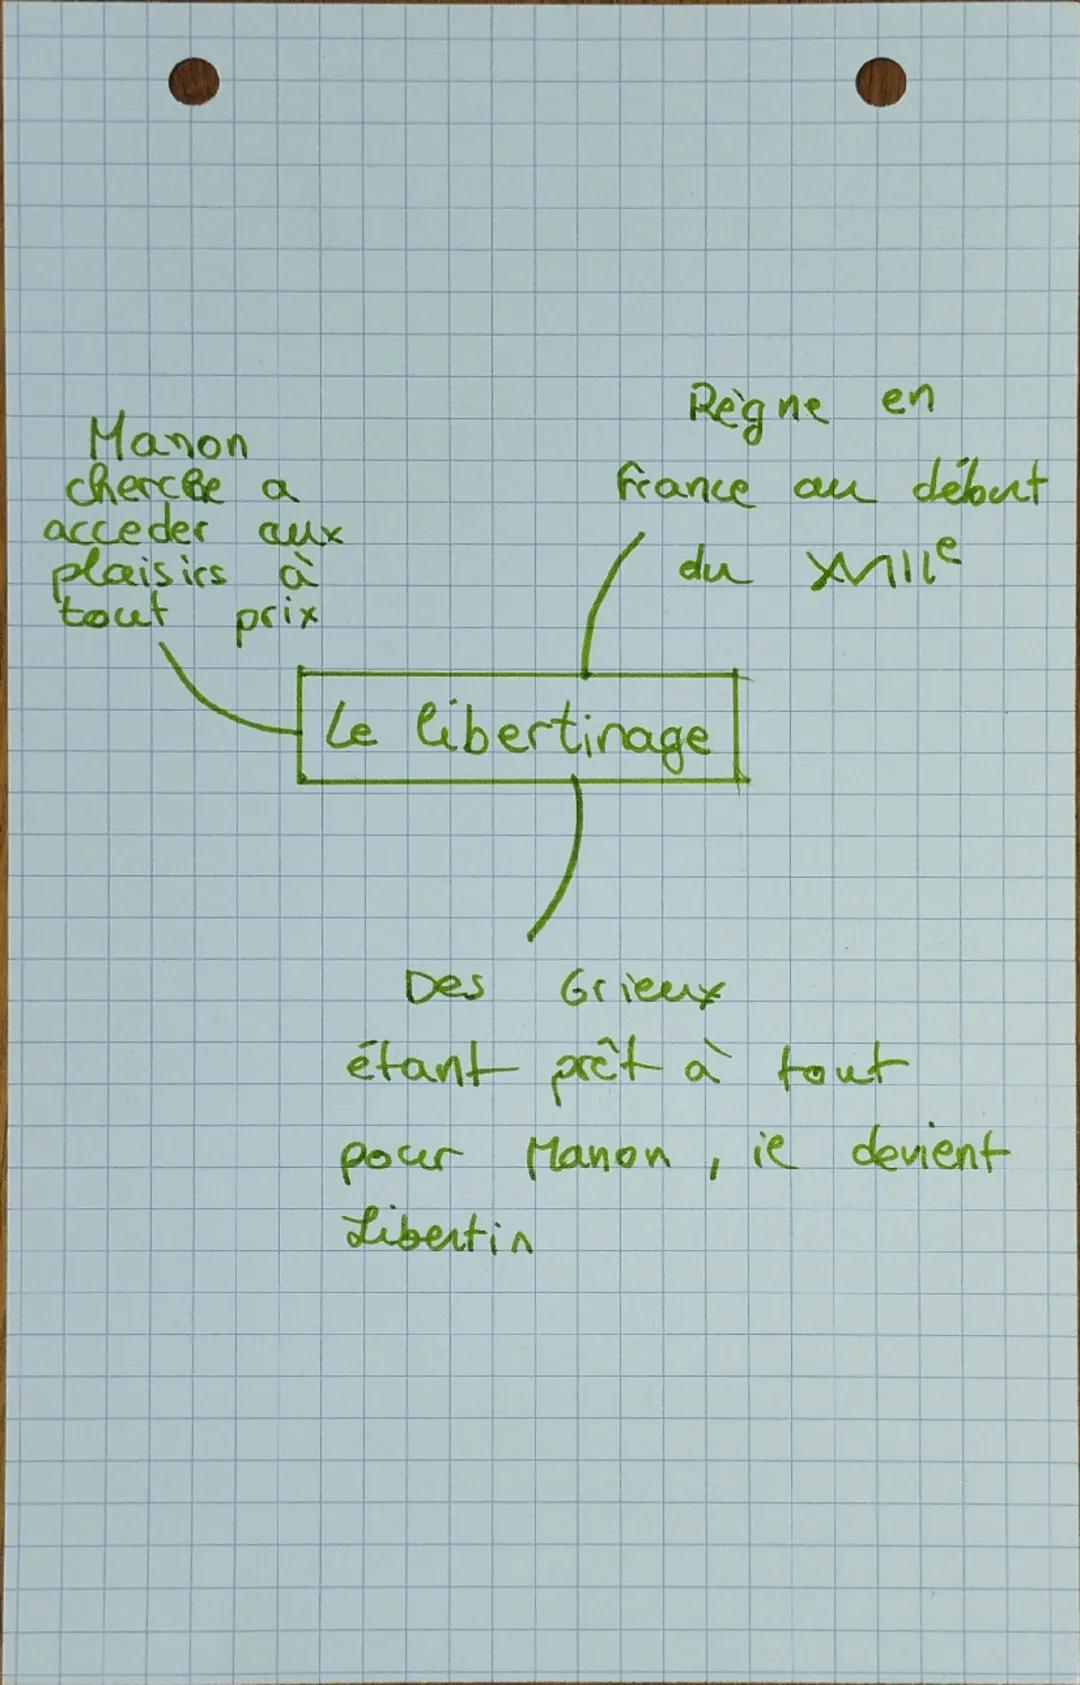 Manon
cherche a
acceder aux
plaisirs à
tout prix
Règne en
france au début
du XVIIIe
Le libertinage
Des Grieux
étant prêt à tout
pour Manon, il devient
Libertin